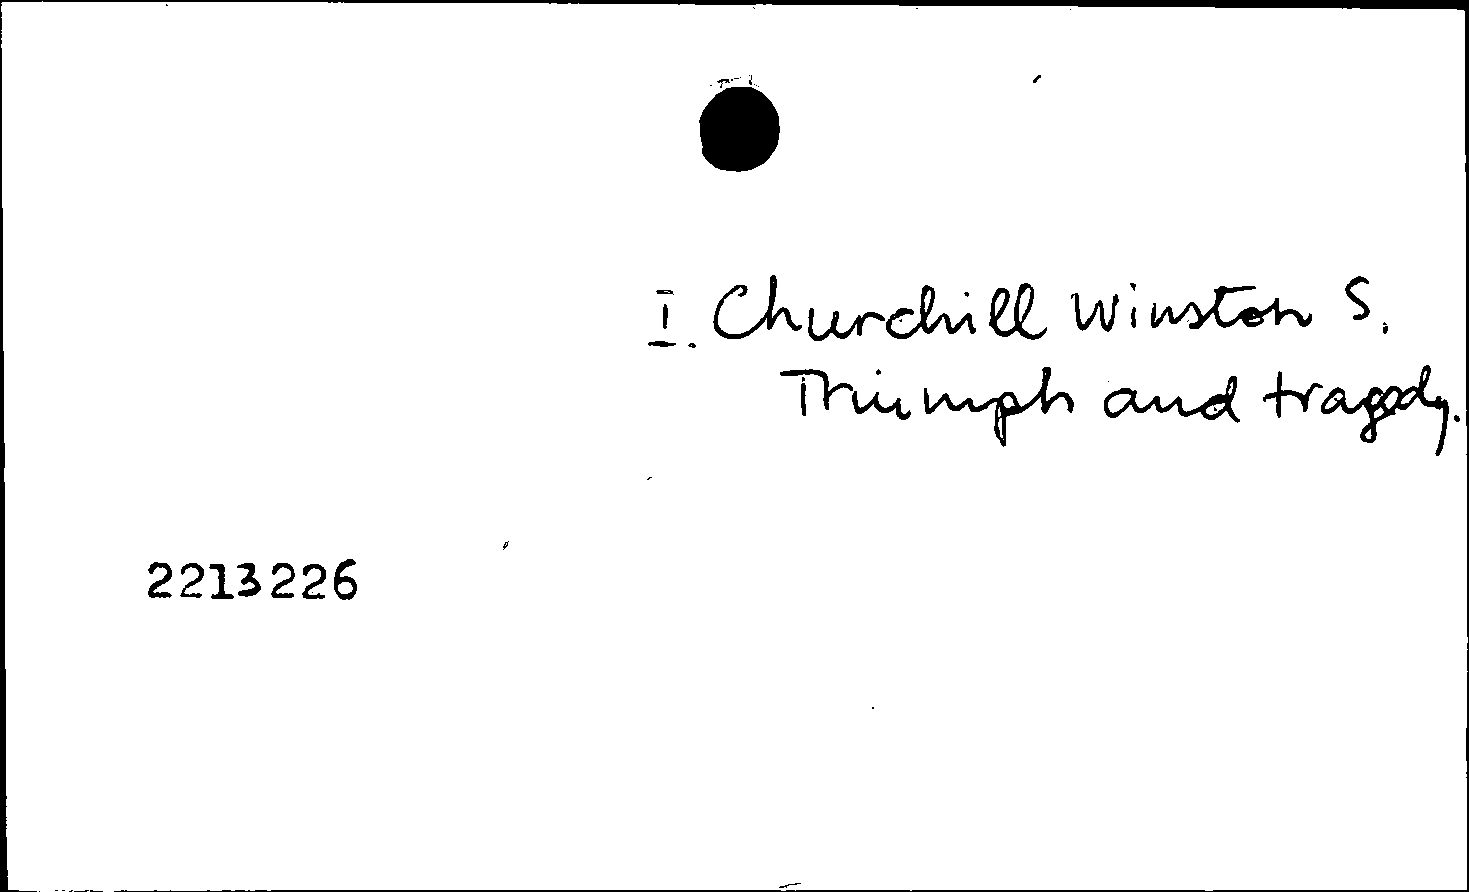 I. Churchill Winston S.
Triumph and tragedy.
2213226